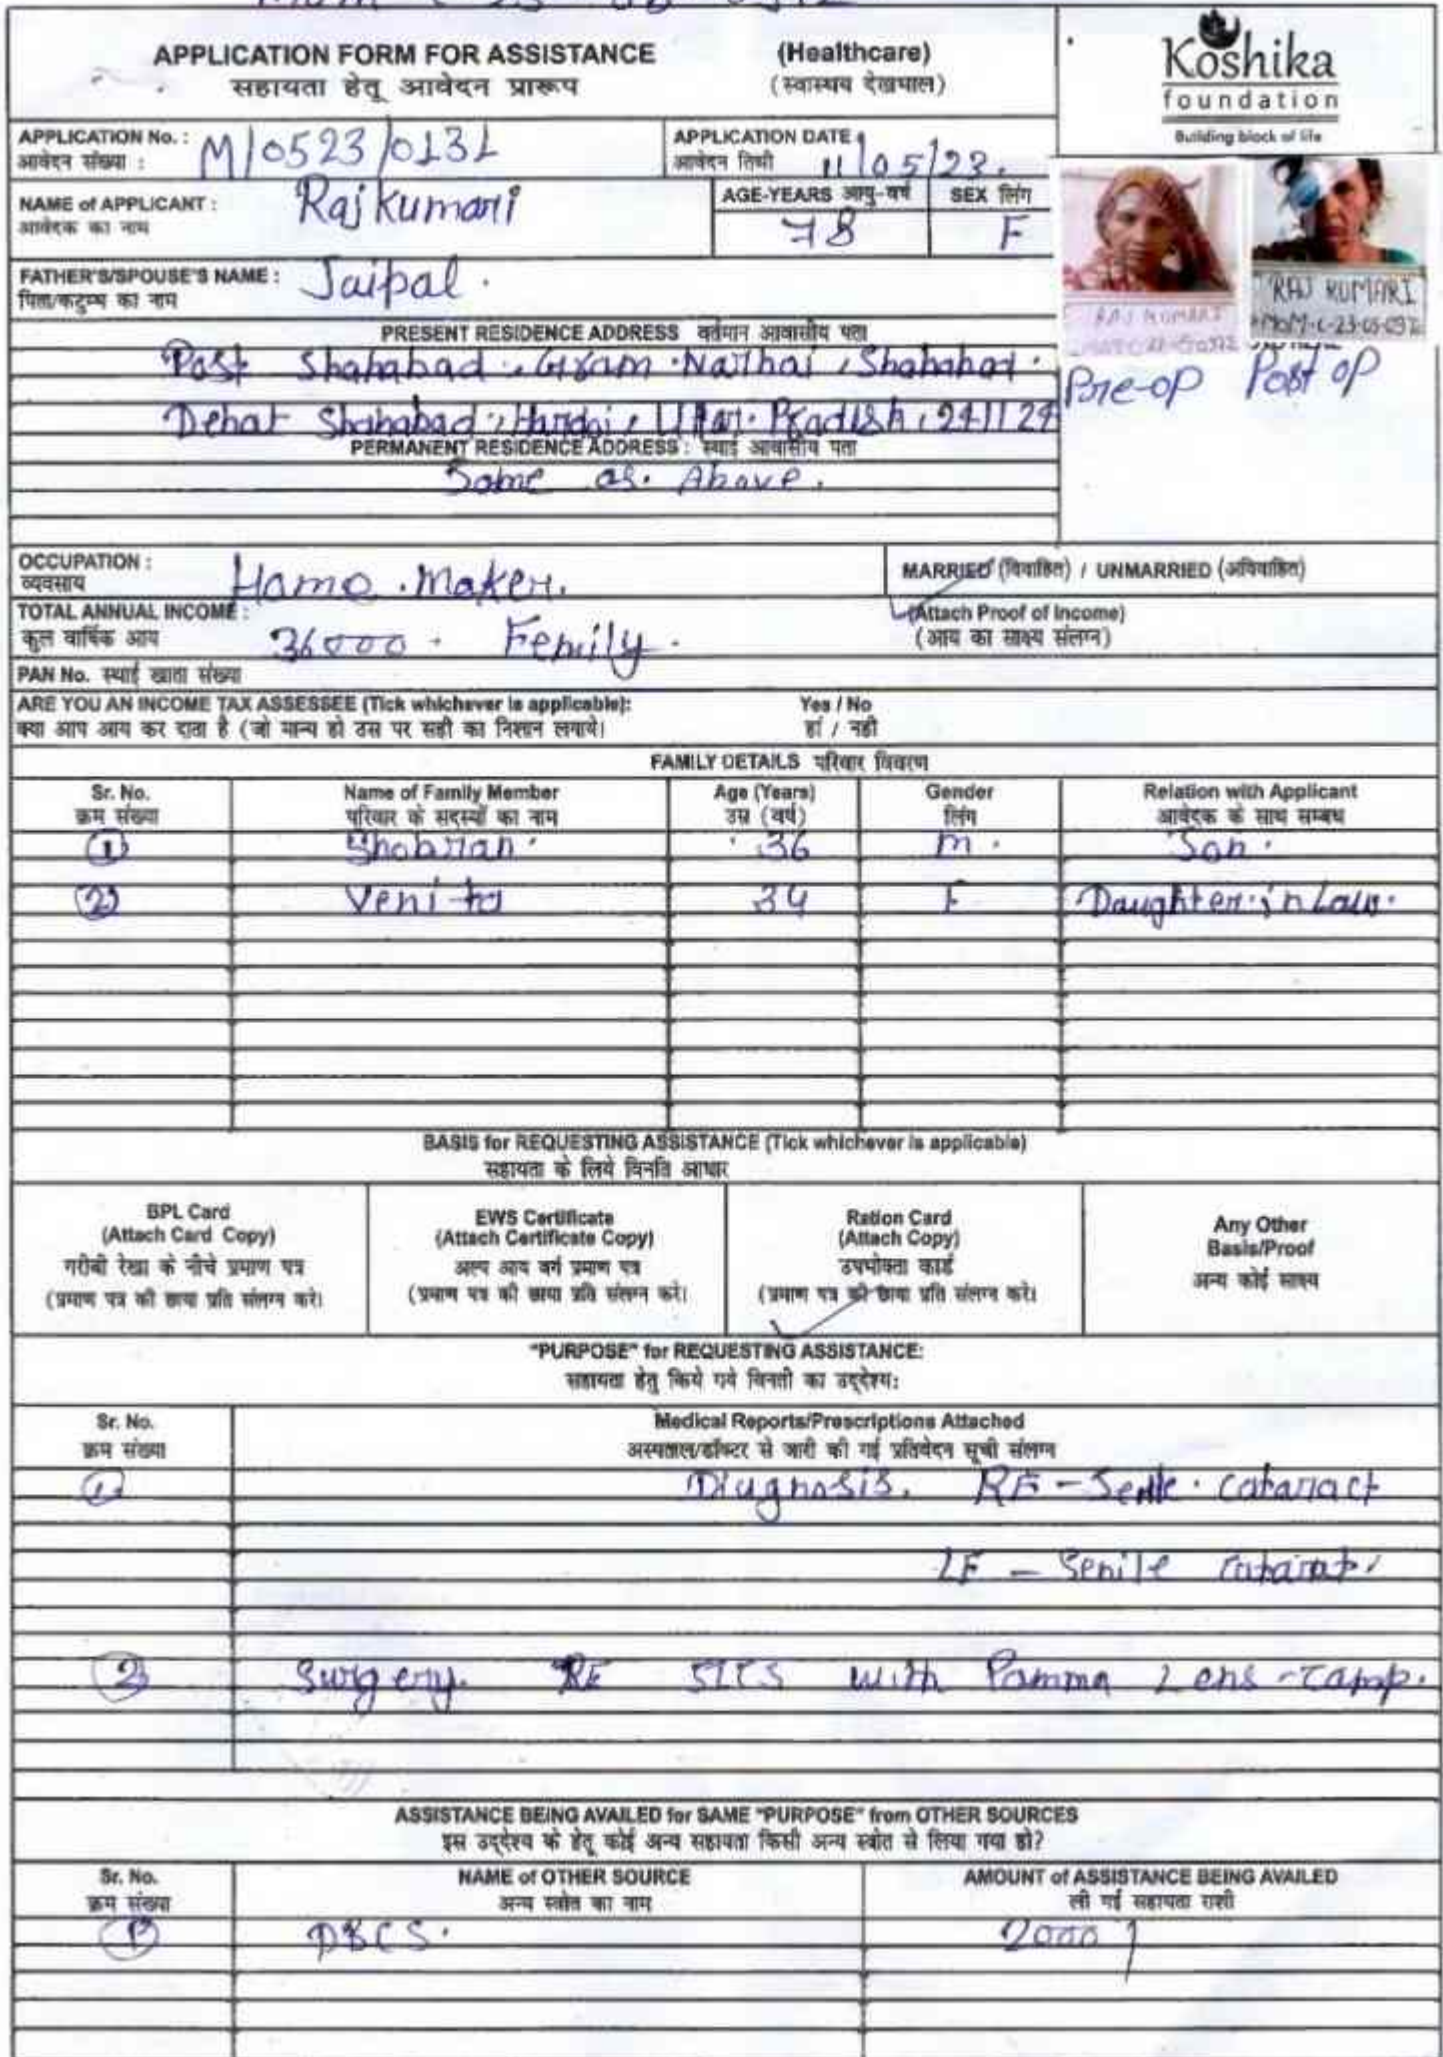 APPLICATION FORM FOR ASSISTANCE (Healthcare)
सहायता हेतू आवेदन प्रारूप (स्वास्थय देखभाल)
Koshika
foundation
Building block of life
APPLICATION No. : M/0523/0131
आवेदन संख्या :
APPLICATION DATE 11/05/23.
आवेदन तिथी
NAME of APPLICANT : Raj Kumari
आवेदक का नाम
AGE-YEARS आयु-वर्ष SEX लिंग
78 F
FATHER'S/SPOUSE'S NAME : Jaipal.
पिता/कटुम्ब का नाम
RAJ KUMARI
RAJ KUMARI
Pre-op Post op
PRESENT RESIDENCE ADDRESS वर्तमान आवासीय पता
Post Shahabad, Gram Narhai, Shahabad.
Dehat Shahabad, Hardoi, Uttar Pradesh, 241124
PERMANENT RESIDENCE ADDRESS : स्थाई आवासीय पता
Same as. Above.
OCCUPATION : Home Maker.
व्यवसाय
MARRIED (विवाहित) / UNMARRIED (अविवाहित)
TOTAL ANNUAL INCOME : 36000 - Femily.
कुल वार्षिक आय
(Attach Proof of Income)
(आय का साक्ष्य संलग्न)
PAN No. स्थाई खाता संख्या
ARE YOU AN INCOME TAX ASSESSEE (Tick whichever is applicable): Yes / No
क्या आप आय कर दाता है (जो मान्य हो उस पर सही का निशान लगाये। हां / नही
FAMILY DETAILS परिवार विवरण
Sr. No. Name of Family Member Age (Years) Gender Relation with Applicant
क्रम संख्या परिवार के सदस्यों का नाम उम्र (वर्ष) लिंग आवेदक के साथ सम्बध
1 Shobran. 36 M. Son.
2 Venita 34 F Daughter in Law.
BASIS for REQUESTING ASSISTANCE (Tick whichever is applicable)
सहायता के लिये विनति आधार
BPL Card
(Attach Card Copy)
गरीबी रेखा के नीचे प्रमाण पत्र
(प्रमाण पत्र की छाया प्रति संलग्न करे।
EWS Certificate
(Attach Certificate Copy)
अल्प आय वर्ग प्रमाण पत्र
(प्रमाण पत्र की छाया प्रति संलग्न करे।
Ration Card
(Attach Copy)
उपभोक्ता कार्ड
(प्रमाण पत्र की छाया प्रति संलग्न करे।
Any Other
Basis/Proof
अन्य कोई साक्ष्य
"PURPOSE" for REQUESTING ASSISTANCE:
सहायता हेतु किये गये विनती का उद्देश्य:
Sr. No. Medical Reports/Prescriptions Attached
क्रम संख्या अस्पताल/डॉक्टर से जारी की गई प्रतिवेदन सूची संलग्न
1 Diagnosis. RE - Senile. cataract
LE - Senile cataract.
2 Surgery. RE SICS with Pamma Lens -camp.
ASSISTANCE BEING AVAILED for SAME "PURPOSE" from OTHER SOURCES
इस उद्देश्य के हेतू कोई अन्य सहायता किसी अन्य स्त्रोत से लिया गया हो?
Sr. No. NAME of OTHER SOURCE AMOUNT of ASSISTANCE BEING AVAILED
क्रम संख्या अन्य स्त्रोत का नाम ली गई सहायता राशी
1 DBCS. 2000